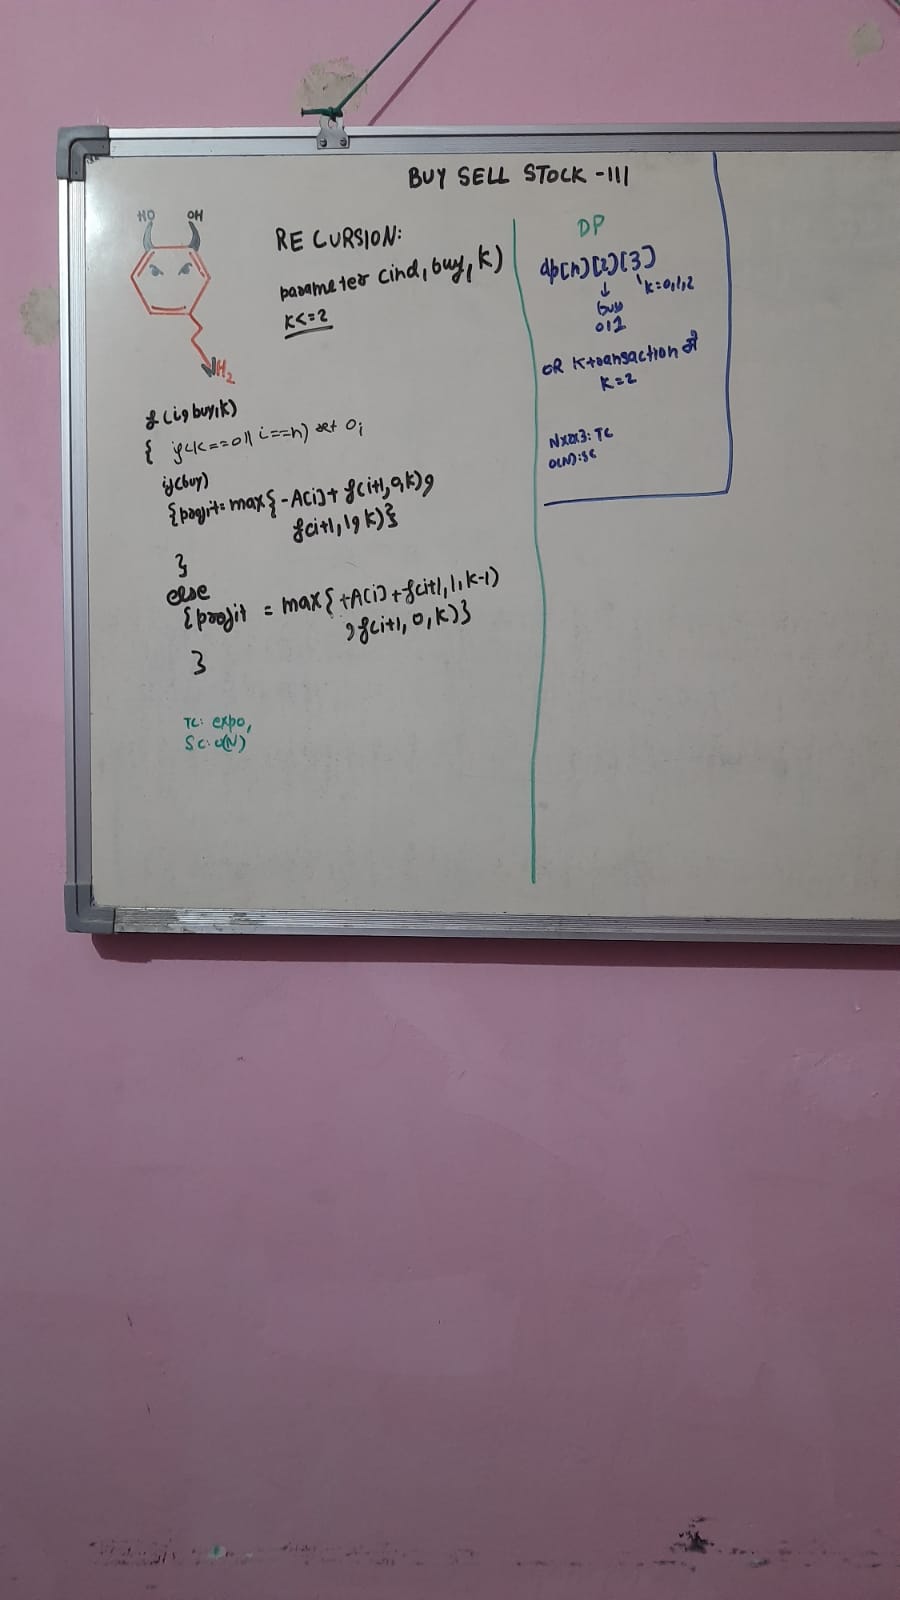 BUY SELL STOCK -III
HO OH
NH2
RECURSION:
parameter (ind, buy, k)
K<=2
f(i, buy, k)
{ if(k==0 || i==n) ret 0;
if(buy)
{profit= max{-A[i]+ f(i+1,0,k),
f(i+1,1,k)}
}
else
{profit = max{+A[i]+f(i+1,1,k-1)
,f(i+1,0,k)}
}
TC: expo,
SC: O(N)
DP
dp[n][2][3]
↓ k=0,1,2
buy
0/1
OR K transaction में
K=2
Nx2x3: TC
O(N): SC